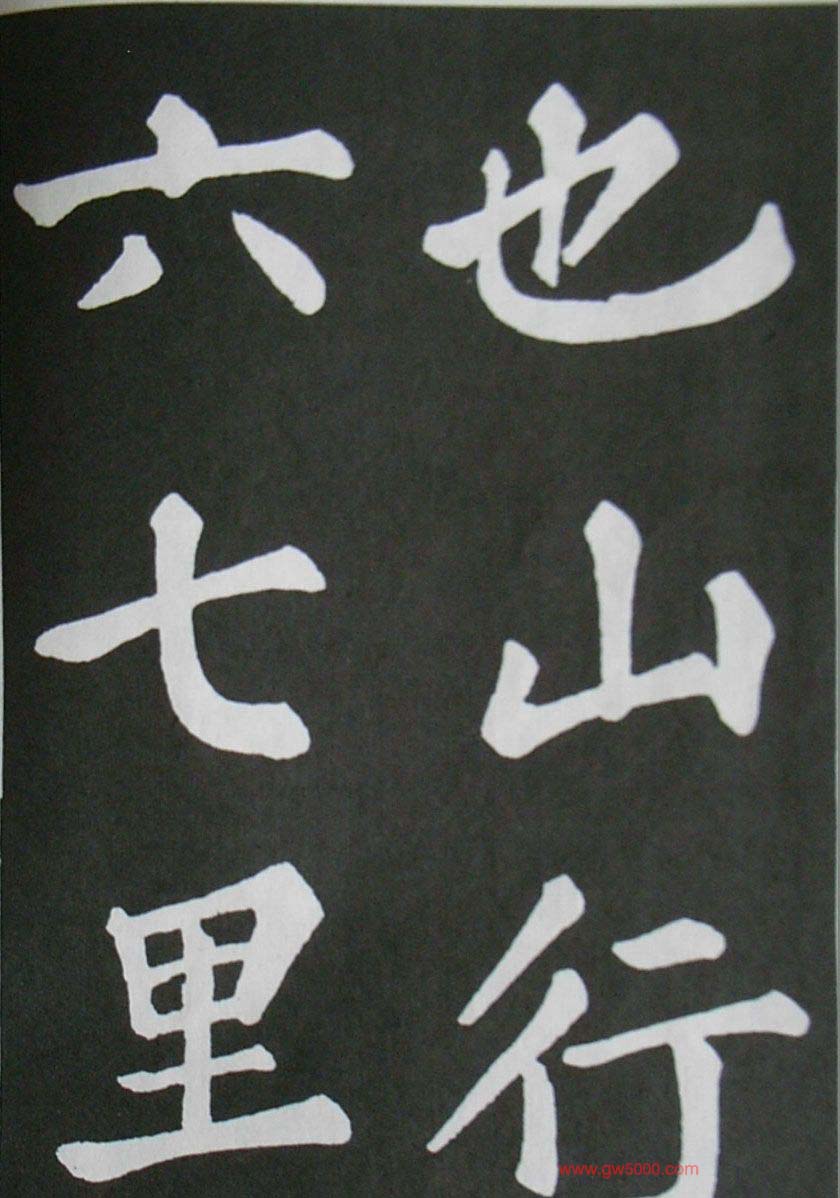 也山行
六七里
www.gw5000.com